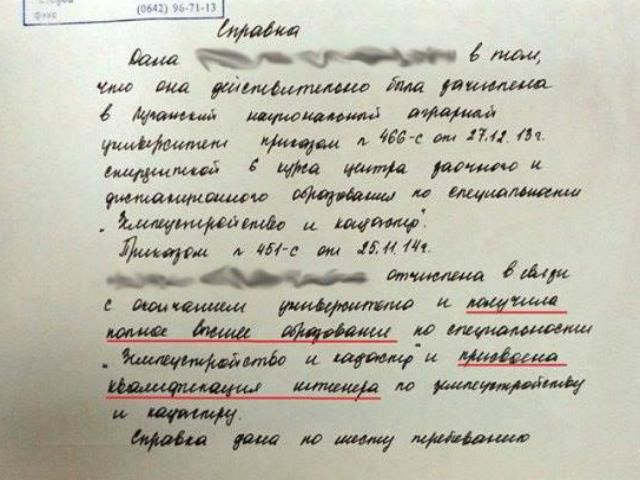 факс
(0642) 96-71-13
Справка
Дана в том,
что она действительно была зачислена
в Луганский национальный аграрной
университет приказом n 466-с от 27.12.13г.
студенткой 6 курса центра заочного и
дистанционного образования по специальности
"Землеустройство и кадастр".
Приказом n 451-с от 25.11.14г.
отчислена в связи
с окончанием университета и получила
полное высшее образование по специальности
"Землеустройство и кадастр" и присвоена
квалификация инженера по землеустройству
и кадастру.
Справка дана по месту требованию